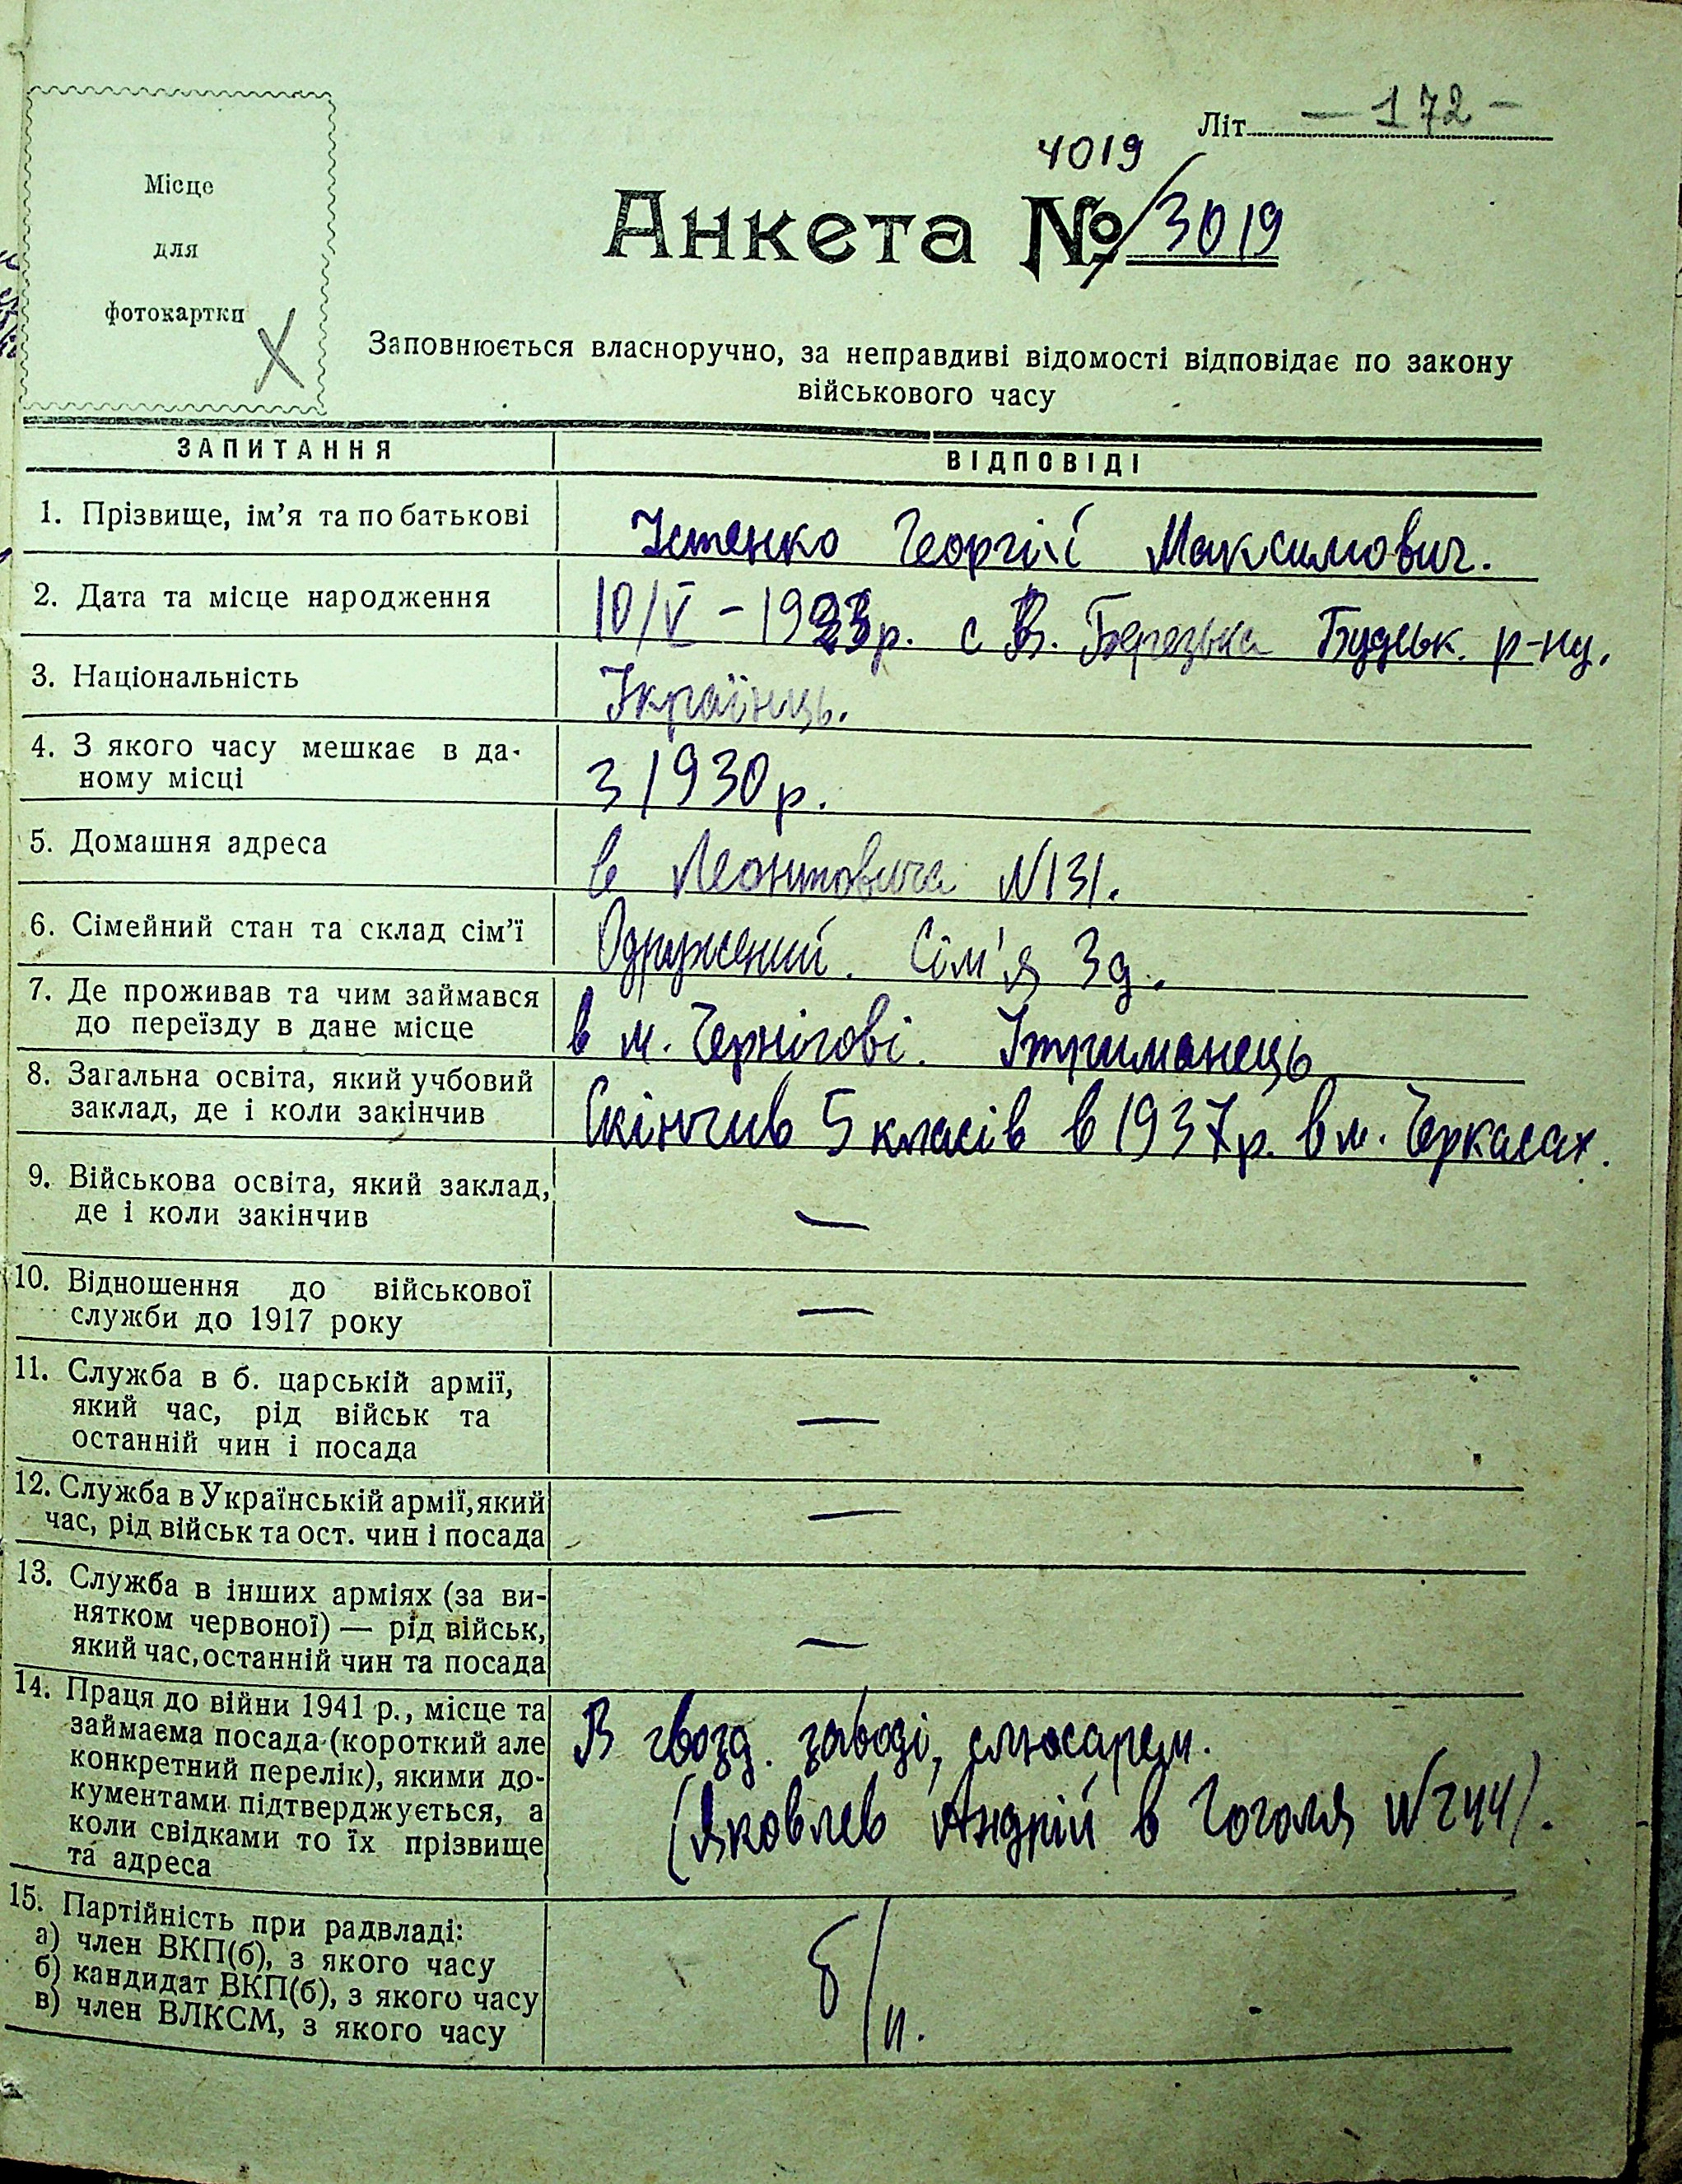 Літ. — 172 —
4019
Анкета № / 3019
Місце
для
фотокартки
X
Заповнюється власноручно, за неправдиві відомості відповідає по закону
військового часу
ЗАПИТАННЯ ВІДПОВІДІ
1. Прізвище, ім'я та по батькові Устенко Георгій Максимович.
2. Дата та місце народження 10/V – 1923р. с В. Березька Будськ. р-ну.
3. Національність Українець.
4. З якого часу мешкає в да-
ному місці з 1930 р.
5. Домашня адреса в Леонтовича N131.
6. Сімейний стан та склад сім'ї Одружений. Сім'я 3 д.
7. Де проживав та чим займався
до переїзду в дане місце в м. Чернігові. Утриманець
8. Загальна освіта, який учбовий
заклад, де і коли закінчив Скінчив 5 класів в 1937р. в м. Черкасах.
9. Військова освіта, який заклад,
де і коли закінчив —
10. Відношення до військової
служби до 1917 року —
11. Служба в б. царській армії,
який час, рід військ та
останній чин і посада —
12. Служба в Українській армії, який
час, рід військ та ост. чин і посада —
13. Служба в інших арміях (за ви-
нятком червоної) — рід військ,
який час, останній чин та посада —
14. Праця до війни 1941 р., місце та
займаєма посада (короткий але
конкретний перелік), якими до-
кументами підтверджується, а
коли свідками то їх прізвище
та адреса
В гвозд. заводі, слюсарем.
(Яковлев Андрій в Гоголя N244).
15. Партійність при радвладі:
а) член ВКП(б), з якого часу
б) кандидат ВКП(б), з якого часу
в) член ВЛКСМ, з якого часу
б/п.